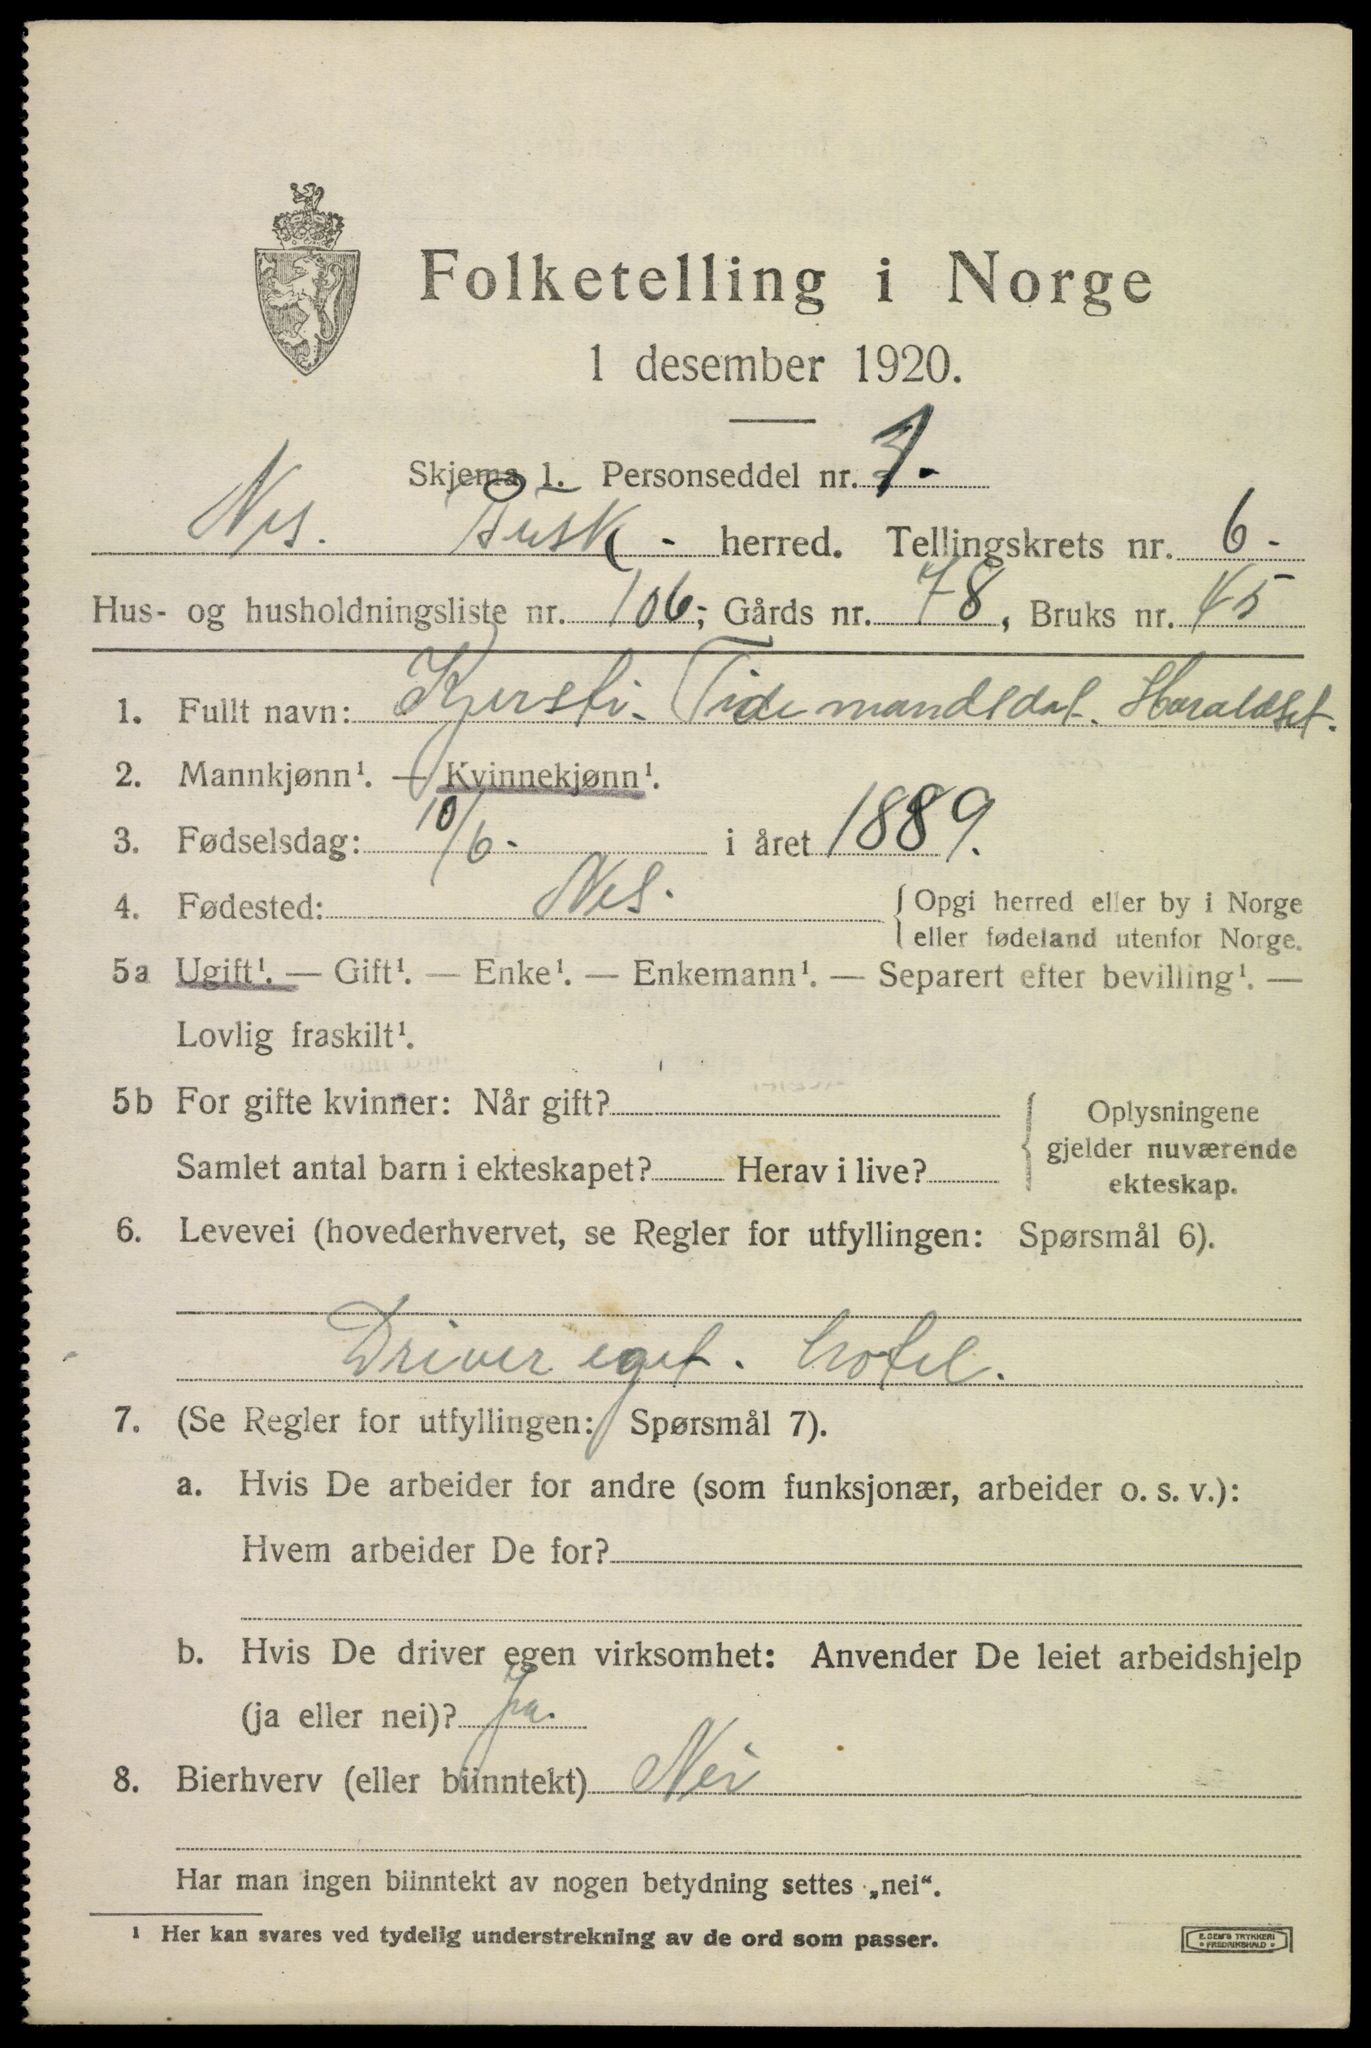 Folketelling i Norge
1 desember 1920.
Skjema 1. Personseddel nr. 1.
Nes. Busk - herred. Tellingskrets nr. 6-
Hus- og husholdningsliste nr. 106; Gårds nr. 78, Bruks nr. 45
1. Fullt navn: Kjersti. Tidemandsdat. Haraldset.
2. Mannkjønn¹. — Kvinnekjønn¹.
3. Fødselsdag: 10/6- i året 1889.
4. Fødested: Nes. { Opgi herred eller by i Norge
eller fødeland utenfor Norge.
5a Ugift¹. — Gift¹. — Enke¹. — Enkemann¹. — Separert efter bevilling¹. —
Lovlig fraskilt¹.
5b For gifte kvinner: Når gift? { Oplysningene
gjelder nuværende
Samlet antal barn i ekteskapet? Herav i live?
ekteskap.
6. Levevei (hovederhvervet, se Regler for utfyllingen: Spørsmål 6).
Driver eget. hotel.
7. (Se Regler for utfyllingen: Spørsmål 7).
a. Hvis De arbeider for andre (som funksjonær, arbeider o. s. v.):
Hvem arbeider De for?
b. Hvis De driver egen virksomhet: Anvender De leiet arbeidshjelp
(ja eller nei)? Ja.
8. Bierhverv (eller biinntekt) Nei
Har man ingen biinntekt av nogen betydning settes „nei“.
¹ Her kan svares ved tydelig understrekning av de ord som passer.
E. SEM'S TRYKKERI
• FREDRIKSHALD •